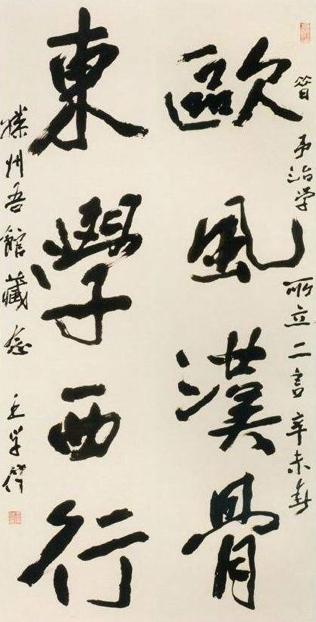 昔予治学所立二言辛未春
歐風漢骨
東學西行
滕州吾館藏念 王学仲